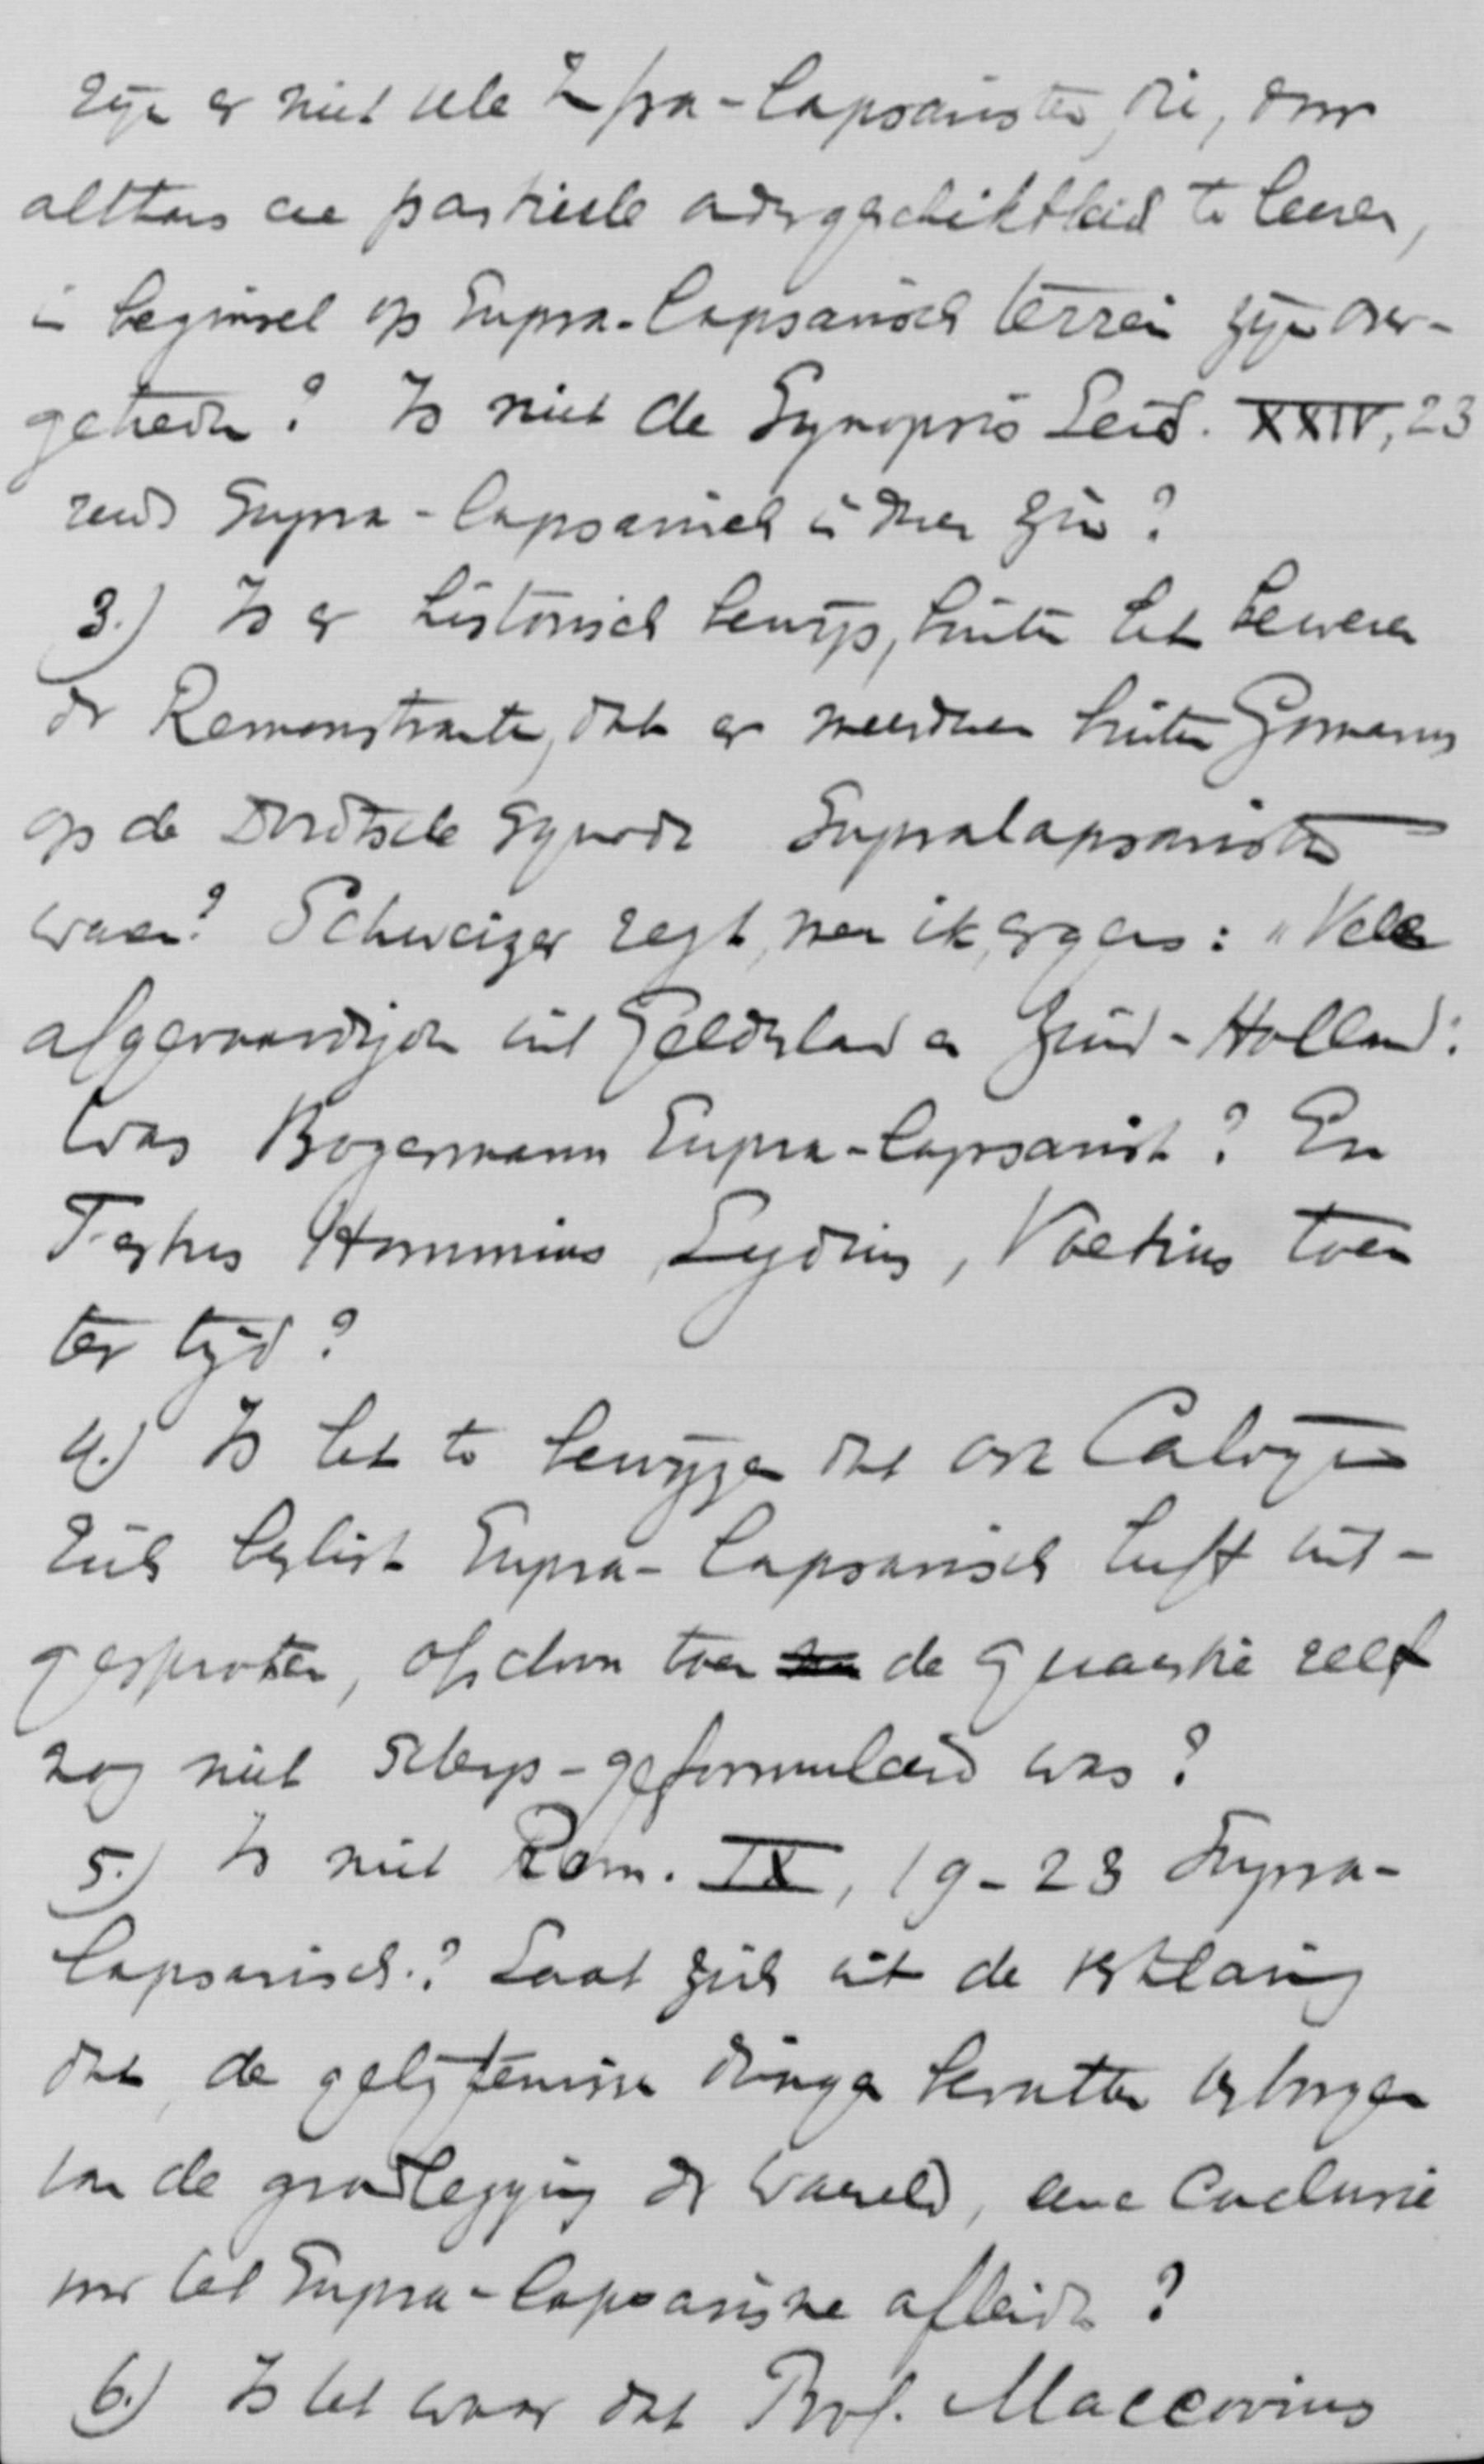 Zijn er niet vele Infra-lapsaristen, die, door
althans eene partieele ondergeschiktheid te leeren,
in beginsel op Supra-lapsarisch terrein zijn over-
getreden? Is niet de Synopsis Leid. XXIV, 23
reeds Supra-lapsarisch in dien zin?
3.) Is er historisch bewijs, buiten het beweren
der Remonstranten, dat er meerderen buiten Gomarus
op de Dordtsche Synode Supralapsaristen
waren? Schweizer zegt, meen ik, ergens: "Vele
afgevaardigden uit Gelderland en Zuid-Holland:
Was Bogermann Supra-lapsarist? En
Festus Hommius, Lydius, Voetius toen
ter tijd?
4.) Is het te bewijzen dat ook Calvijn
zich beslist Supra-lapsarisch heeft uit-
gesproken, ofschoon toen de quaestie zelf
nog niet scherp-geformuleerd was?
5.) Is niet Rom. IX, 19-23 Supra-
lapsarisch? Laat zich uit de verklaring
dat de gelijkenissen dingen bevatten verborgen
van de grondlegging der wereld, eene conclusie
voor het Supra-lapsarisme afleiden?
6.) Is het waar dat Prof. Maccovius